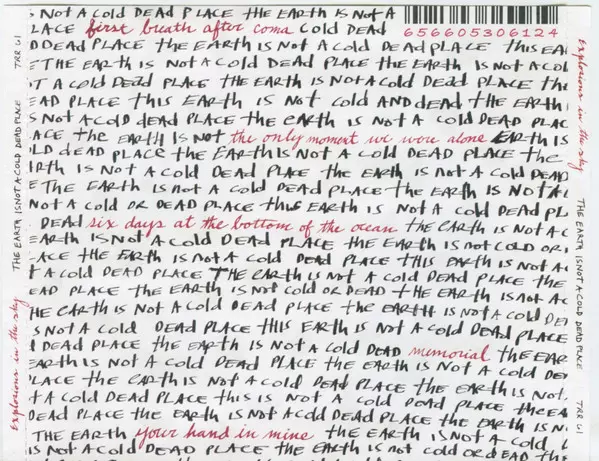 S NOT A COLD DEAD PLACE THE EARTH IS NOT A
LACE first breath after coma COLD DEAD
656605306124
D DEAD PLACE THE EARTH IS NOT A COLD DEAD PLACE THIS EA
THE EARTH IS NOT A COLD DEAD PLACE THE EARTH IS NOT A COL
T A COLD DEAD PLACE THE EARTH IS NOT A COLD DEAD PLACE THE
EAD PLACE THIS EARTH IS NOT COLD AND DEAD THE EARTH
S NOT A COLD DEAD PLACE THE EARTH IS NOT A COLD DEAD PLAC
ACE THE EARTH IS NOT the only moment we were alone EARTH IS
OLD DEAD PLACE THE EARTH IS NOT A COLD DEAD PLACE THE
ARTH IS NOT A COLD DEAD PLACE THE EARTH IS NOT A COLD DEAD
E THE EARTH IS NOT A COLD DEAD PLACE THE EARTH IS NOT A
NOT A COLD OR DEAD PLACE THIS EARTH IS NOT A COLD DEAD PL
DEAD six days at the bottom of the ocean THE EARTH IS NOT A C
EARTH IS NOT A COLD DEAD PLACE THE EARTH IS NOT COLD OR
LACE THE EARTH IS NOT A COLD DEAD PLACE THIS EARTH IS NOT A
T A COLD DEAD PLACE THE EARTH IS NOT A COLD DEAD PLACE THE
EAD PLACE THE EARTH IS NOT COLD OR DEAD THE EARTH IS NOT A
HE EARTH IS NOT A COLD DEAD PLACE THE EARTH IS NOT A COLD DE
S NOT A COLD DEAD PLACE THIS EARTH IS NOT A COLD DEAD PLACE
DEAD PLACE THE EARTH IS NOT A COLD DEAD memorial THE EAR
EARTH IS NOT A COLD DEAD PLACE THE EARTH IS NOT A COLD DE
LACE THE EARTH IS NOT A COLD DEAD PLACE THE EARTH IS NOT
T A COLD DEAD PLACE THIS IS NOT A COLD DEAD PLACE THE EA
DEAD PLACE THE EARTH IS NOT A COLD DEAD PLACE THE EARTH IS N
THE EARTH your hand in mine THE EARTH IS NOT A COLD
IS NOT A COLD DEAD PLACE THE EARTH IS NOT COLD OR DEAD THE
Explosions in the sky THE EARTH IS NOT A COLD DEAD PLACE TRR 61
Explosions in the sky THE EARTH IS NOT A COLD DEAD PLACE TRR 61